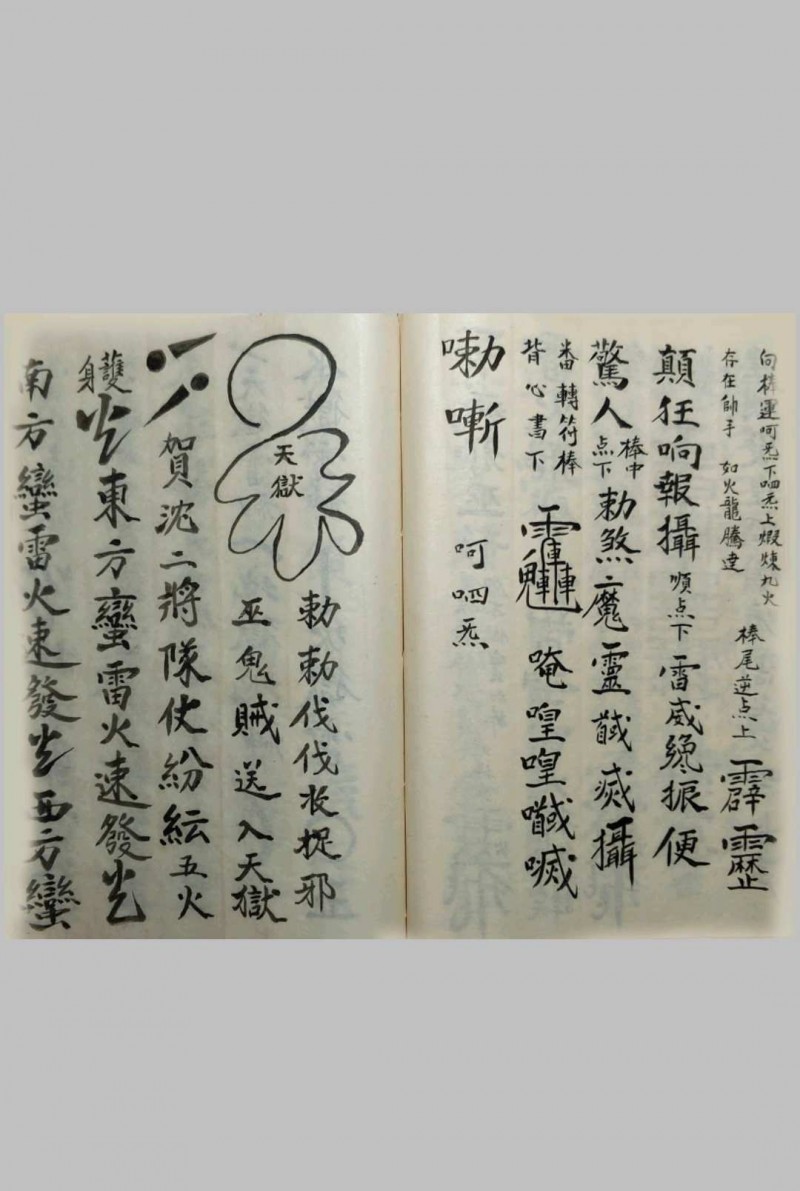 向棒運呵炁下呬炁上煆煉九火
存在帥手 如火龍騰達
棒尾逆点上 霹靂
顛狂响報攝 順点下 雷威纔振便
驚人 棒中点下 勅煞魔靈馘滅攝
番轉符棒
背心書下 唵喤喤嘰𡂖
嘞嘶 呵呬炁
天獄
勅勅伐伐收捉邪
巫鬼賊送入天獄
賀沈二將隊仗紛紜五火
東方蠻雷火速發
南方蠻雷火速發 西方蠻